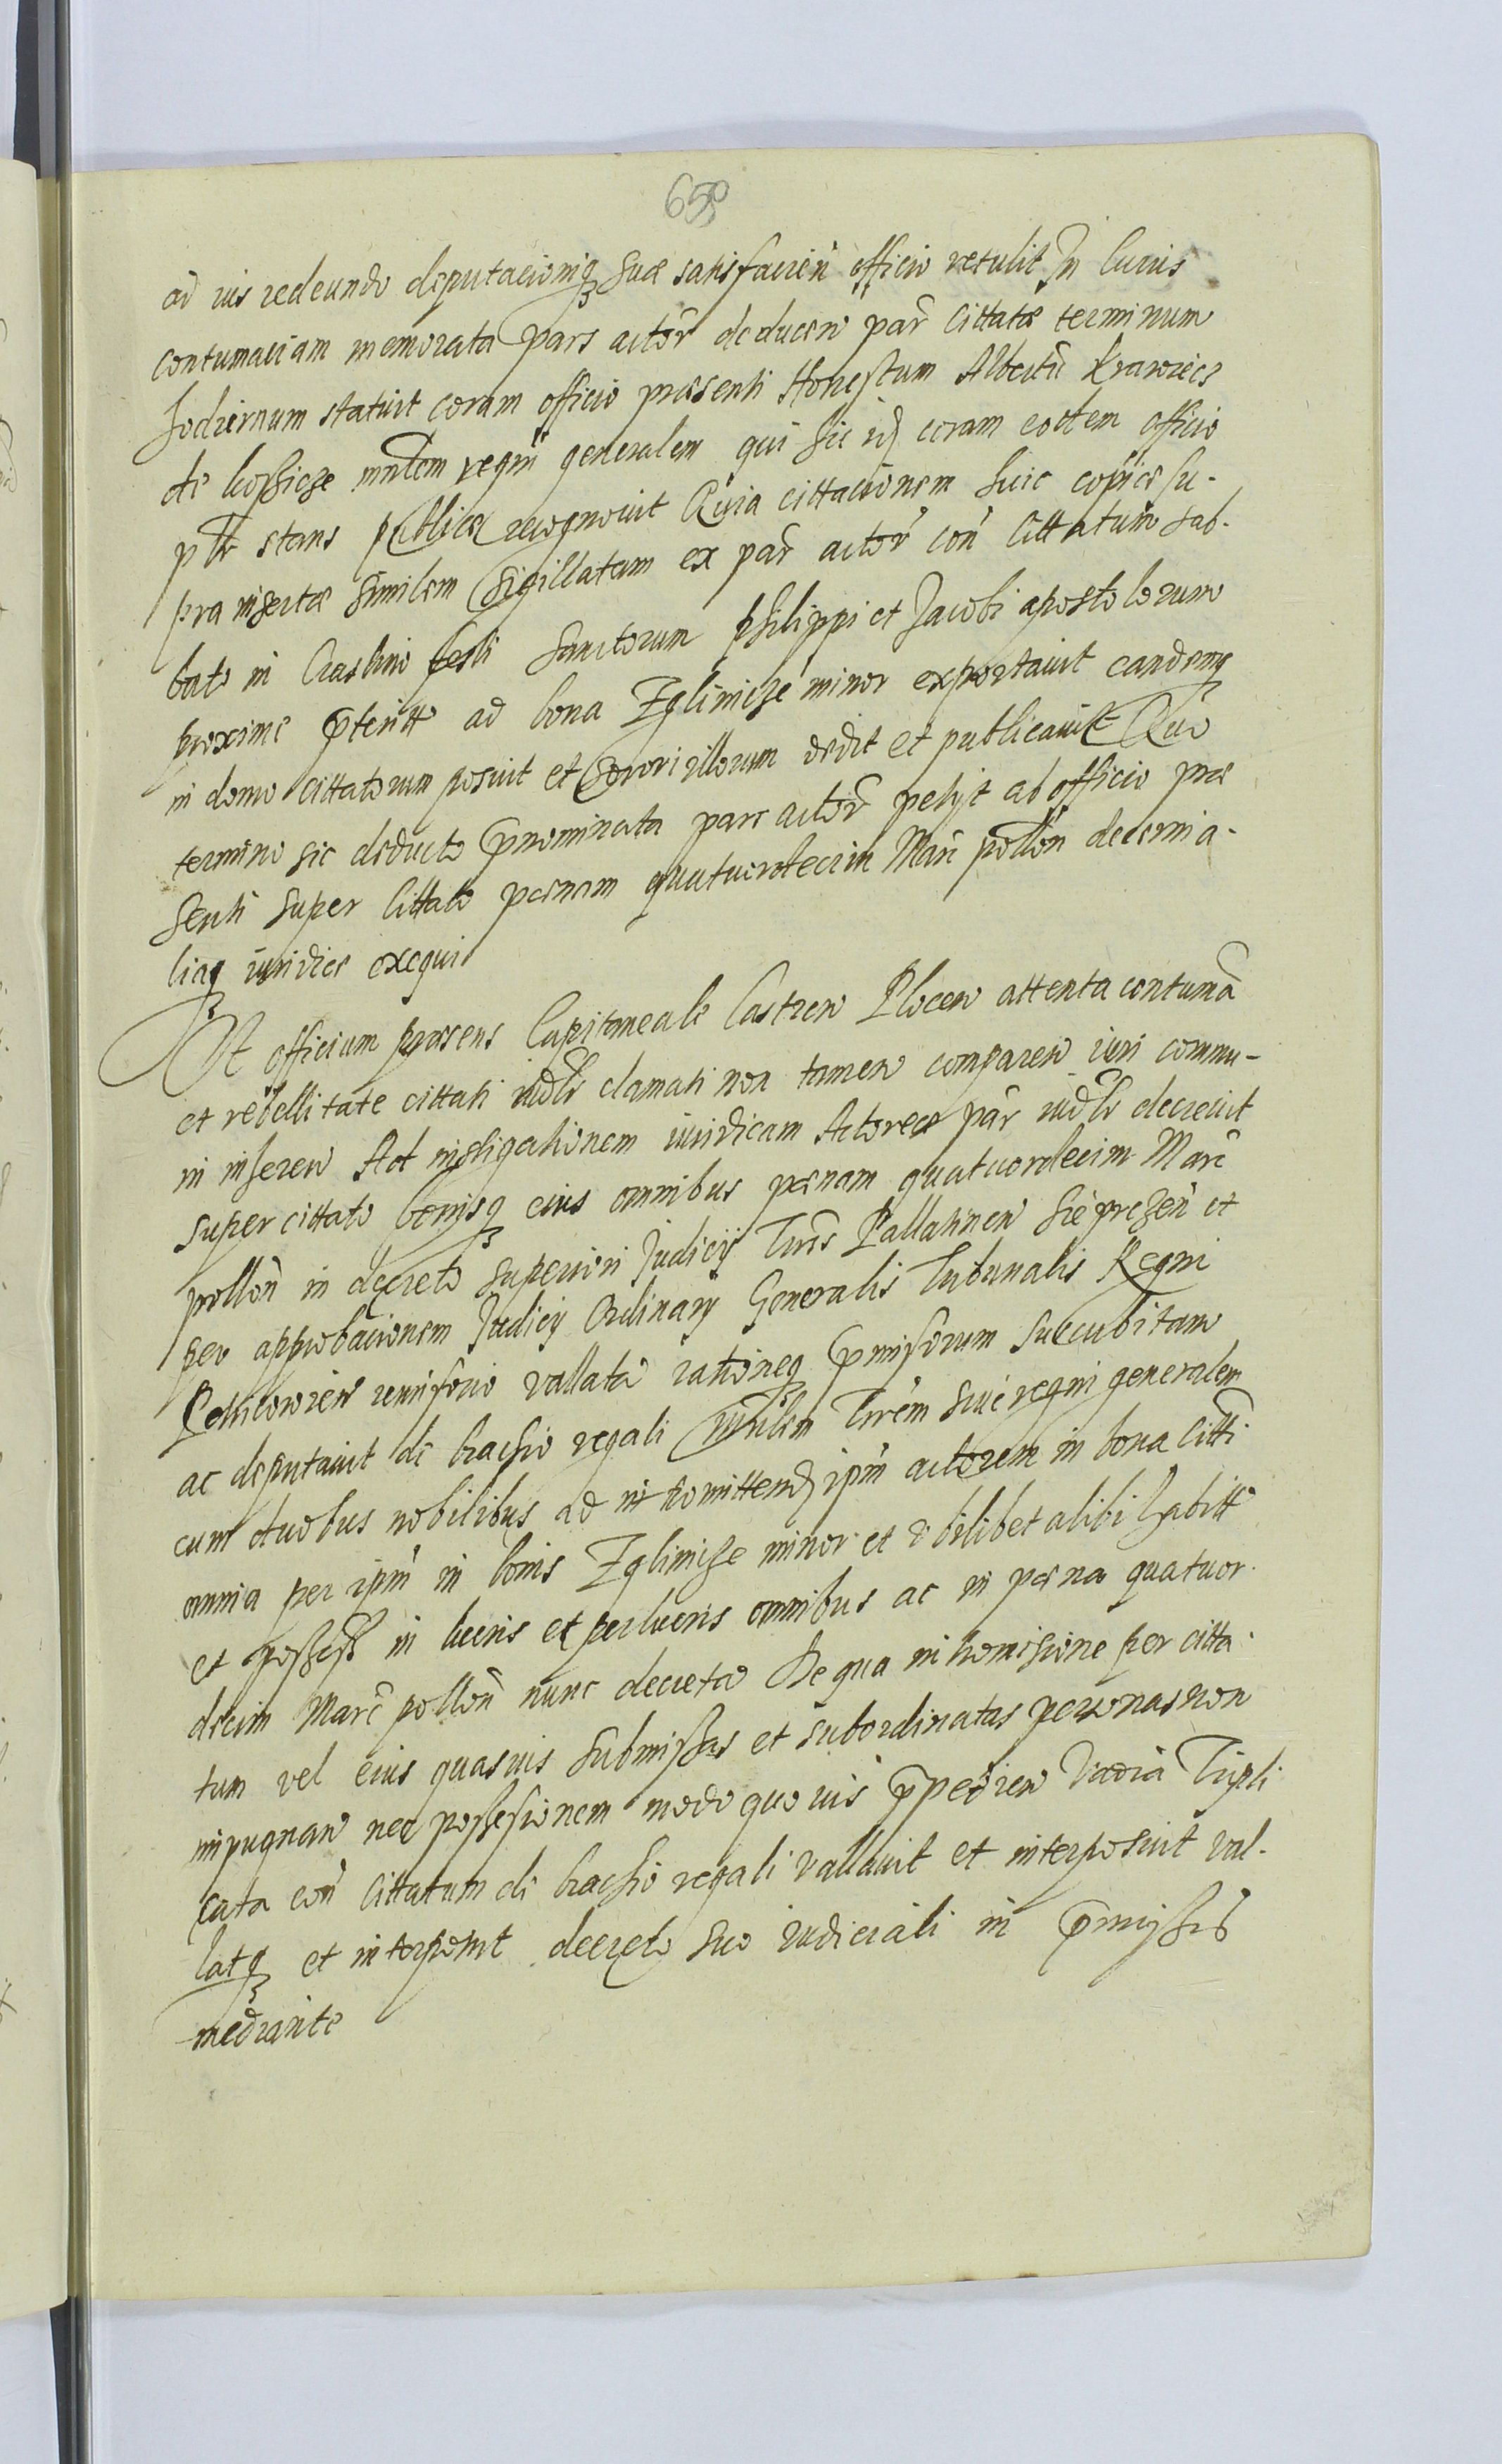 659
ad ius redeundo deputacioniq3 suæ satisfacien̄ officio retulit In cuius
contumaciam memorata pars actor̄ deducen par̄ Cittatæ terminum
hodiernum statuit coram officio præsenti Honestum Albertū Krawiecz
de mnlem regni generalem qui hic id coram eodem officio
pntr stans publicæ recognovit Quia cittacionem huic copiæ su-
pra insertæ similem Sigillatam ex par̄ actor̄ con̄ Cittatum Sab-
bato in Crastino festi Sanctorum Philippi et Jacobi apostolorum
proxime pterit̄ ad bona Zglinicze minor exportavit eandemq3
in domo cittatorum posuit et Sorori illorum dedit et publicavit Quo
termino sic deducto pnominata pars actor̄ petijt ab officio præ
senti super Cittato pænam quatuordecim Mar̄ pollōn decerni a-
liaq3 iuridice exequi
Et officium præsens Capitaneale Castren Plocen attenta contumā
et rebellitate cittati iudlr clamati non tamen comparen iuri commu-
ni inheren Ad instigationem iuridicam Actoreæ par̄ iudlr decrevit
super cittato bonisq3 eius omnibus pænam quatuordecim Marc̄
pollōn in decreto superiori Judicij Trris Pallatinen Sieprczen̄ et
per approbacionem Judicij Ordinarij Generalis Tribunalis Regni
Petricovien remissorio vallatā rationeq3 pmissorum succubitam
ac deputavit de brachio regali mnlem Trrēm sive regni generalem
cum duobus nobilibus ad intromittend ipm̄ actorem in bona Citti
omnia per ipm̄ in bonis Zglinicze minor et ubilibet alibi habitt
et possess in lucris et perlucris omnibus ac in pæna quatuor-
decim Marc̄ pollōn nunc decreta De qua intromissione per citta-
tum vel eius quasvis submissas et subordinatas personas non
inpugnan nec possessionem modo quovis ppedien Vadia Tripli
cata con̄ Cittatum de brachio regali vallavit et interposuit val-
latq3 et interponit decreto suo iudiciali in pmissis
mediante